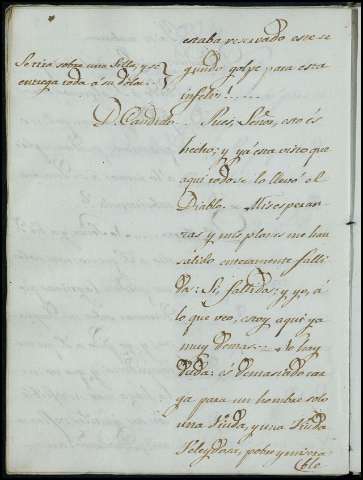 estaba reservado este se
gundo golpe para esta
infeliz!......
Se tira sobre una Silla, y se
entrega toda á su dolor.
D. Candido... Pues, Señor, esto és
hecho; y ya está visto que
aqui todo se lo llevó el
Diablo... Mis esperan
zas y mis planes me han
salido enteramente falli
dos: Si, fallidos; y yo, á
lo que veo, estoy aqui ya
muy demas... No hay
duda: és demasiado car
ga para un hombre solo
una Viuda, y una Viuda
pobre y misera
ble